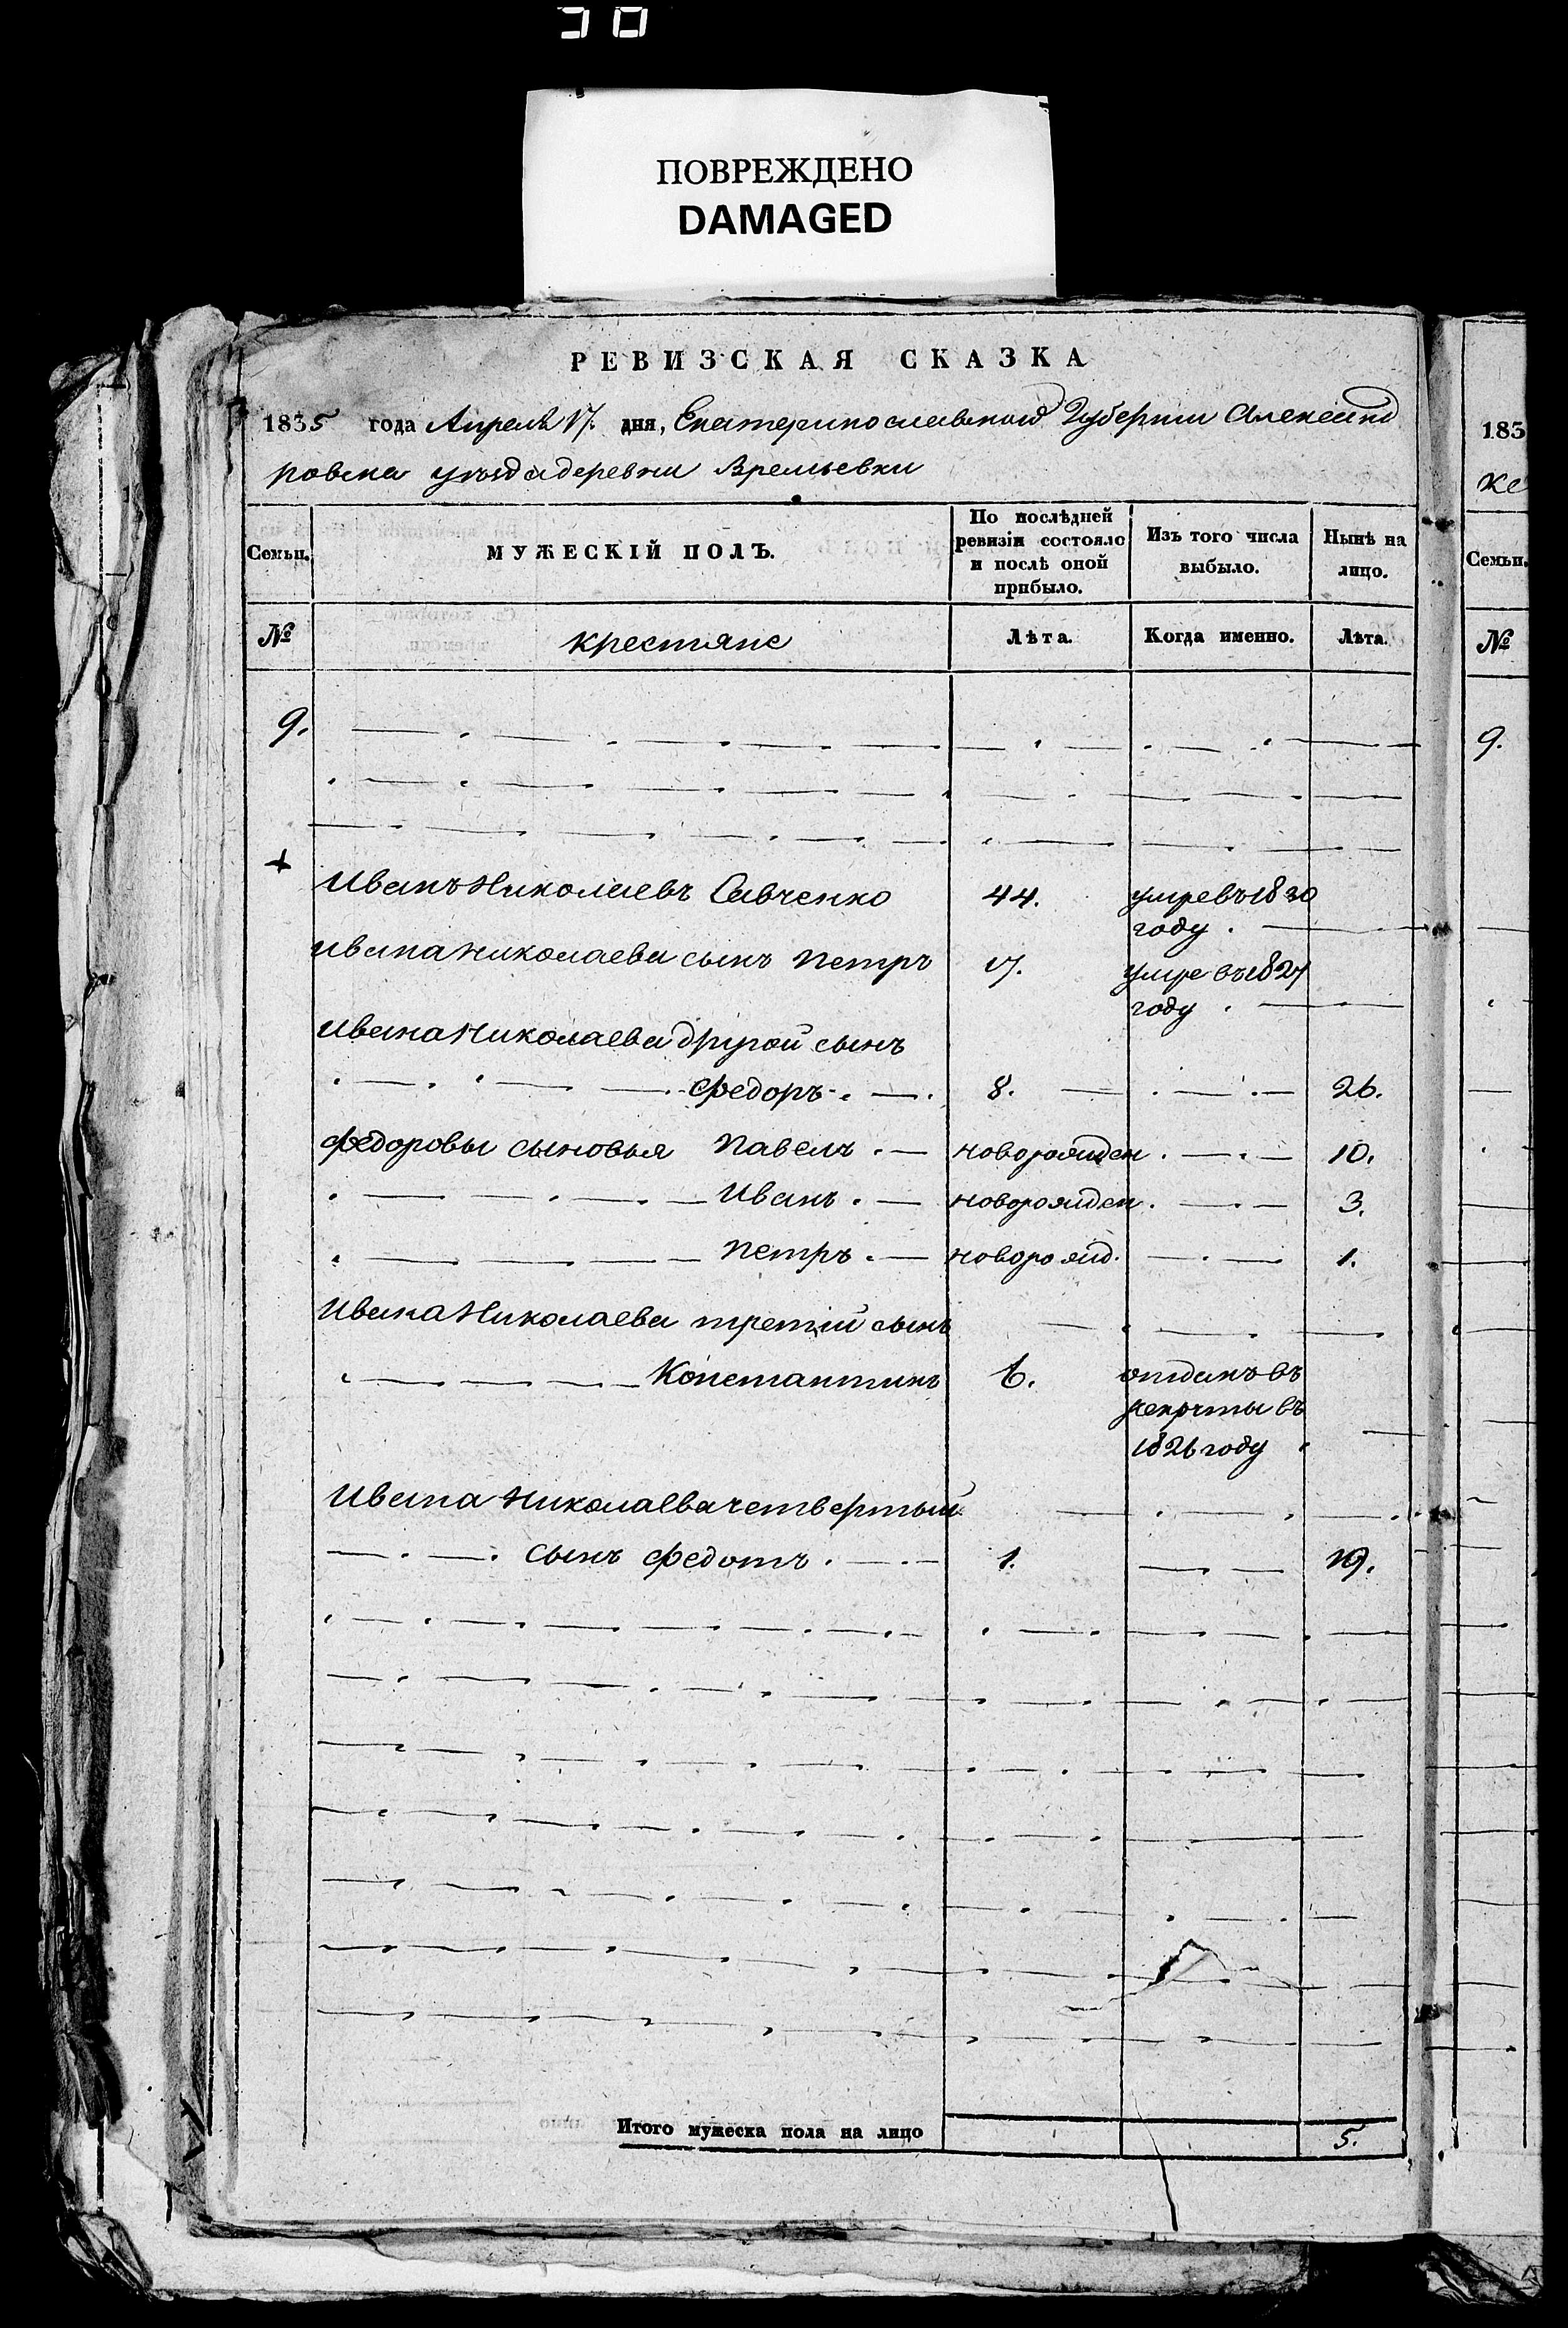 ПОВРЕЖДЕНО
DAMAGED
РЕВИЗСКАЯ СКАЗКА
1835 года Апреля 17. дня, Екатеринославской Губернии Александ
ровска уѣзда деревни Времьевки
Семьи. МУЖЕСКІЙ ПОЛЪ. По послѣдней ревизіи состояло и послѣ оной прибыло. Изъ того числа выбыло. Нынѣ на лицо.
№ крестяне Лѣта. Когда именно. Лѣта.
9.
Иванъ Николаевъ Савченко 44. умре въ 1830
году
Ивана Николаева сынъ Петръ 17. умре въ 1827
году
Ивана Николаева другой сынъ
Федоръ 8. 26.
Федоровы сыновья Павелъ новорожден 10.
Иванъ новорожден 3.
Петръ новорожд. 1.
Ивана Николаева третий сынъ
Константинъ 6. отданъ въ
рекруты въ
1826 году
Ивана Николаева четвертый
сынъ Федотъ 1. 19.
Итого мужеска пола на лицо 5.
183
Семьи.
№
9.